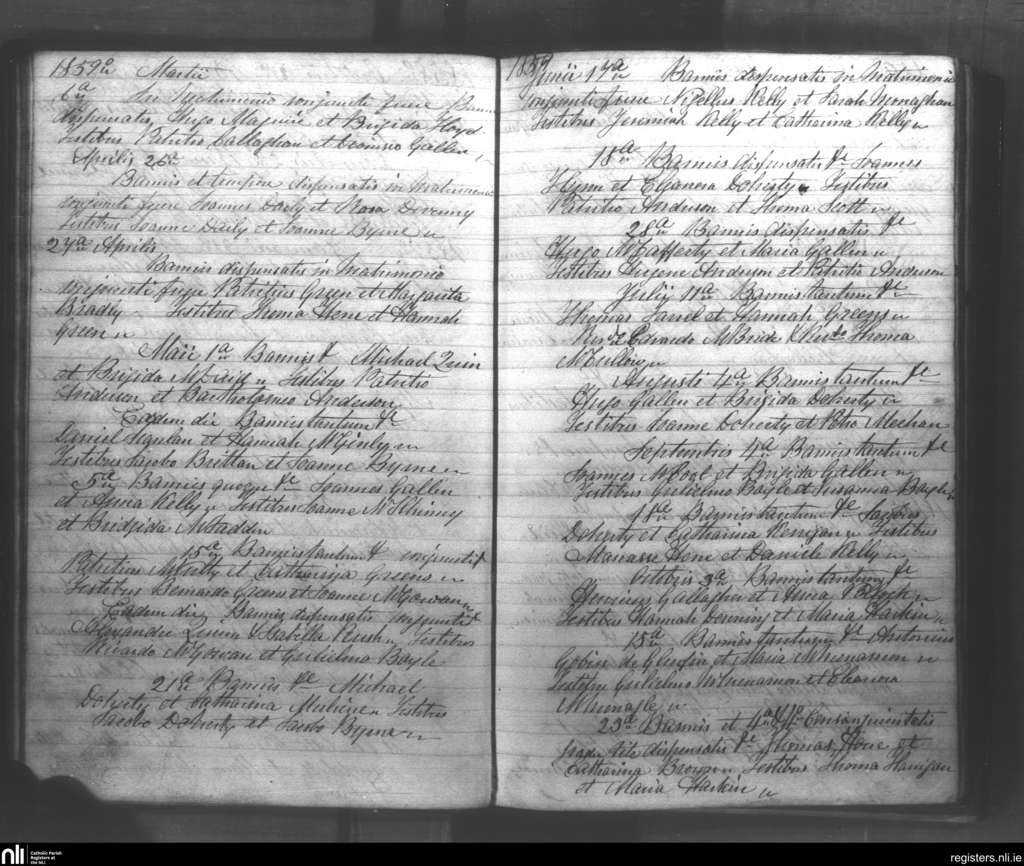 1859o Martii
6a In Matrimonio conjuncti fuere Bannis
dispensatis, Hugo Maguire et Brigida Floyd
Testibus Patritio Callaghan et Dionisio Gallen
Aprilis 26a
Bannis et tempore dispensatis in Matrimonio
conjuncti fuere Joannes Daily et Rosa Devenny
Testibus Joanne Daily et Joanne Byrne
27a Aprilis
Bannis dispensatis in Matrimonio
conjuncti fuere Patritius Green et Margarita
Bradly Testibus Thoma Hene et Hannah
Green
Maii 1a Bannis Michael Quin
et Brigida Testibus Patritio
Anderson et Bartholomeo Anderson
Eadem die Bannis tantum &c
Daniel et Hannah McGinly
Testibus Jacobo Brittan et Joanne Byrne
5a Bannis quoque &c Joannes Gallen
et Anna Kelly Testibus Joanne
et Bridgida McFadden
15a Bannis tantum conjuncti
Patritium et Catharina Greene
Testibus Bernardo Greens et Joanne McGowan
Eadem die Bannis dispensatis conjuncti
Alexander Quinn & Isabella Rush Testibus
Ricardo McGowan et Gulielmo Bayle
21a Bannis &c Michael
Doherty et Catharina Testibus
Jacobo Doherty et Jacobo Byrne
1859
Junii 17a Bannis dispensatis in Matrimonio
conjuncti fuere Nigellus Kelly et Sarah Monaghan
Testibus Jeremiah Kelly et Catharina Kelly
18a Bannis dispensatis &c Joannes
Flynn et Eleanora Doherty Testibus
Patritio Anderson et Thoma Scott
28a Bannis dispensatis &c
Hugo McCafferty et Maria Gallen
Testibus Eugene Anderson et Patritio Anderson
Julii 11a Bannis tantum &c
Thomas et Hannah Greens
Revdo Edwardo McBride & Revdo Thoma
Augusti 4a Bannis tantum &c
Hugo Gallen et Brigida Doherty
Testibus Joanne Doherty et Petro Meehan
Septembris 4a Bannis tantum &c
Joannes McCool et Brigida Gallen
Testibus Gulielmo Bayle et Susanna Bayle
18a Bannis tantum &c Jacobus
Doherty et Catharina Kerrigan Testibus
Manasse Hene et Daniele Kelly
Octobris 3a Bannis tantum &c
Dominicus Gallagher et Anna
Testibus Hannah Devenny et Maria Harkin
15a Bannis tantum &c Antonius
de Glenfin et Maria McMenamon
Testibus Gulielmo McMenamon et Eleanora
23a Bannis et 4o Consanguinitatis
gradu rite dispensatis &c Thomas et
Catharina Brown Testibus Thoma Hanigan
et Maria Harkin
nli
Catholic Parish
Registers at
the NLI
registers.nli.ie